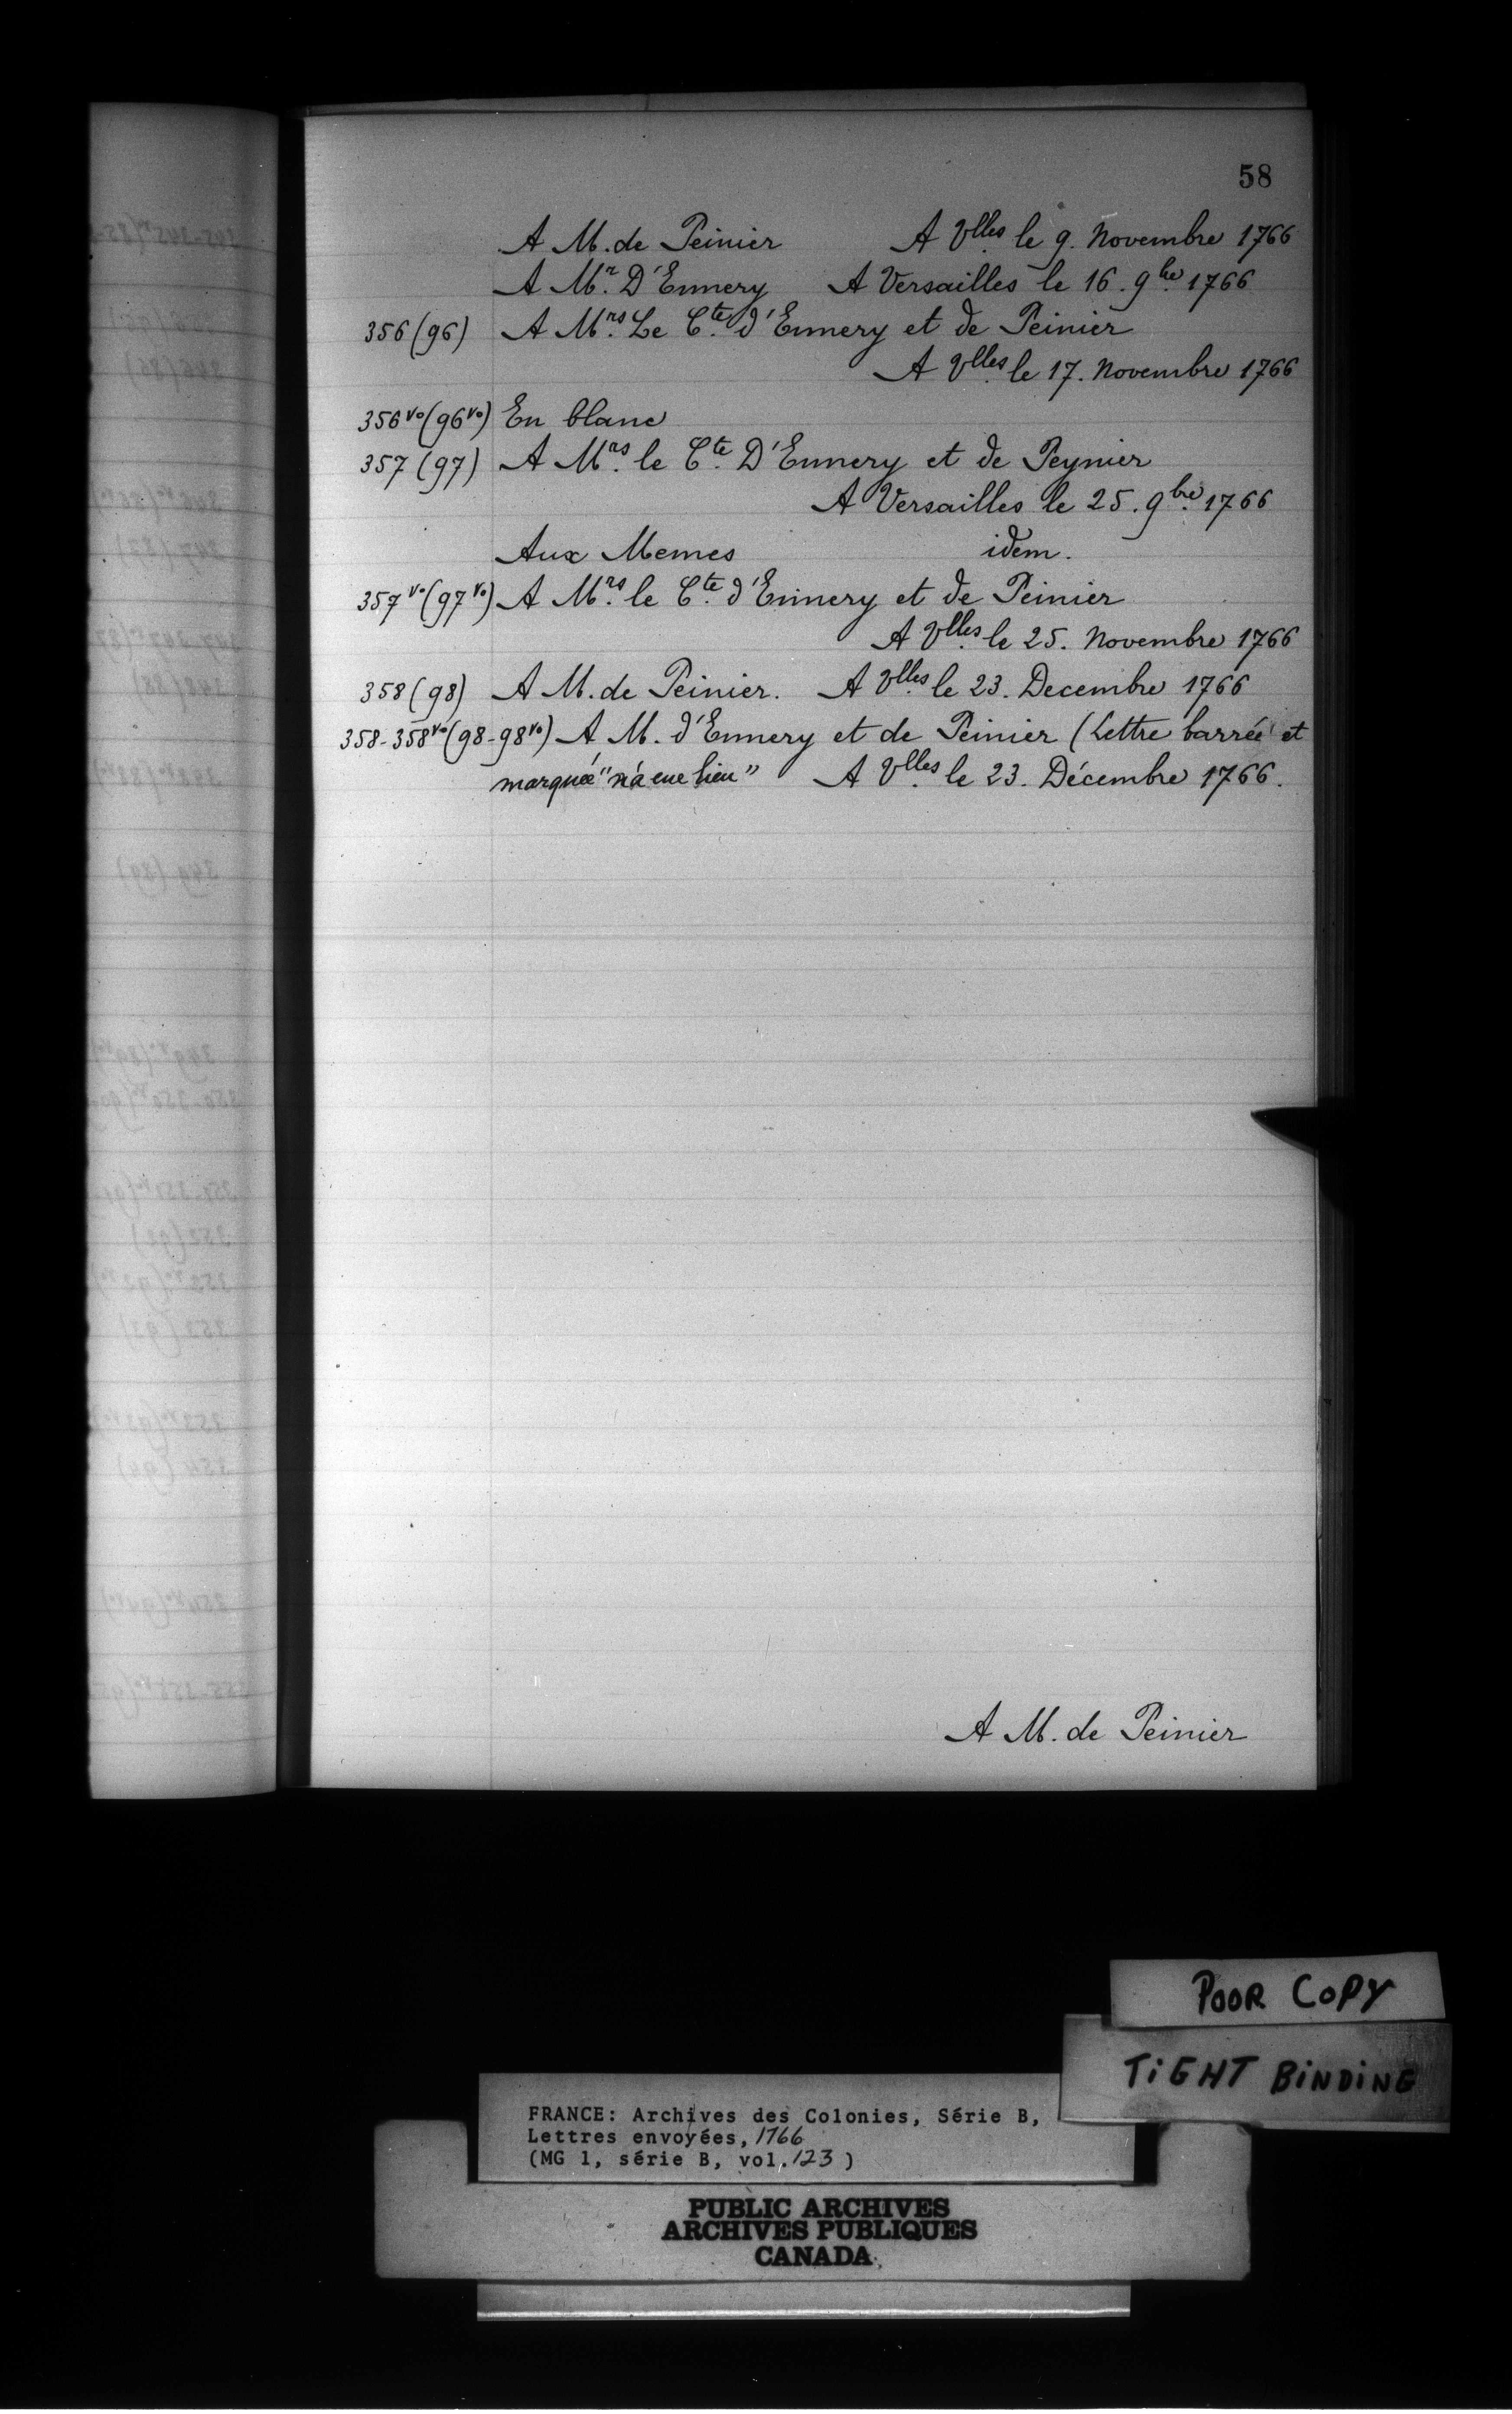 58
A M. de Peinier A Vlles le 9. Novembre 1766
A Mr. D'Ennery A Versailles le 16. 9bre 1766
356 (96) A Mrs. Le Cte. d'Ennery et de Peinier
A Vlles. le 17. Novembre 1766
356 vo (96 vo) En blanc
357 (97) A Mrs. le Cte. D'Ennery et de Peynier
A Versailles le 25. 9bre. 1766
Aux Memes idem.
357 vo (97 vo) A Mrs. le Cte. d'Ennery et de Peinier
A Vlles. le 25. Novembre 1766
358 (98) A M. de Peinier. A Vlles. le 23. Decembre 1766
358-358 vo (98-98 vo) A M. d'Ennery et de Peinier (Lettre barrée et
marquée "n'a eue lieu" A Vlles. le 23. Décembre 1766.
A M. de Peinier
POOR COPY
TIGHT BINDING
FRANCE: Archives des Colonies, Série B,
Lettres envoyées, 1766
(MG 1, série B, vol. 123 )
PUBLIC ARCHIVES
ARCHIVES PUBLIQUES
CANADA